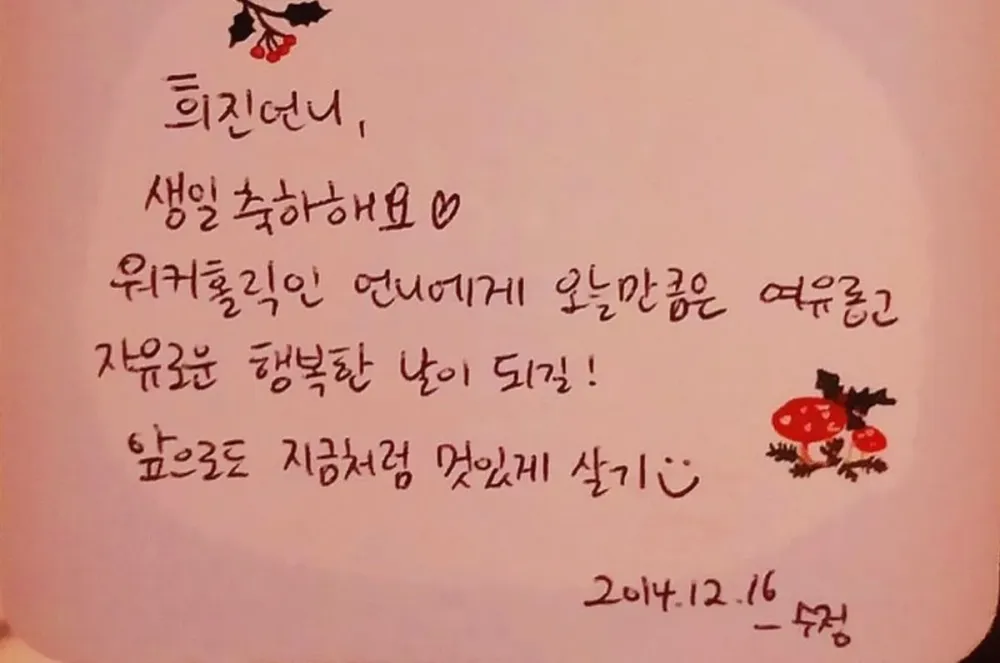 희진언니,
생일축하해요♡
워커홀릭인 언니에게 오늘만큼은 여유롭고
자유로운 행복한 날이 되길!
앞으로도 지금처럼 멋있게 살기 :)
2014.12.16
- 수정